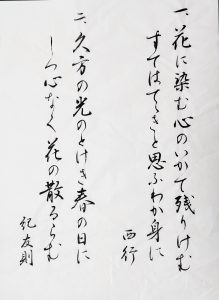 一、花に染む心のいかて残りけむ
すてはてゝきと思ふわか身に
西行
二、久方の光のとけき春の日に
しつ心なく花の散るらむ
紀友則